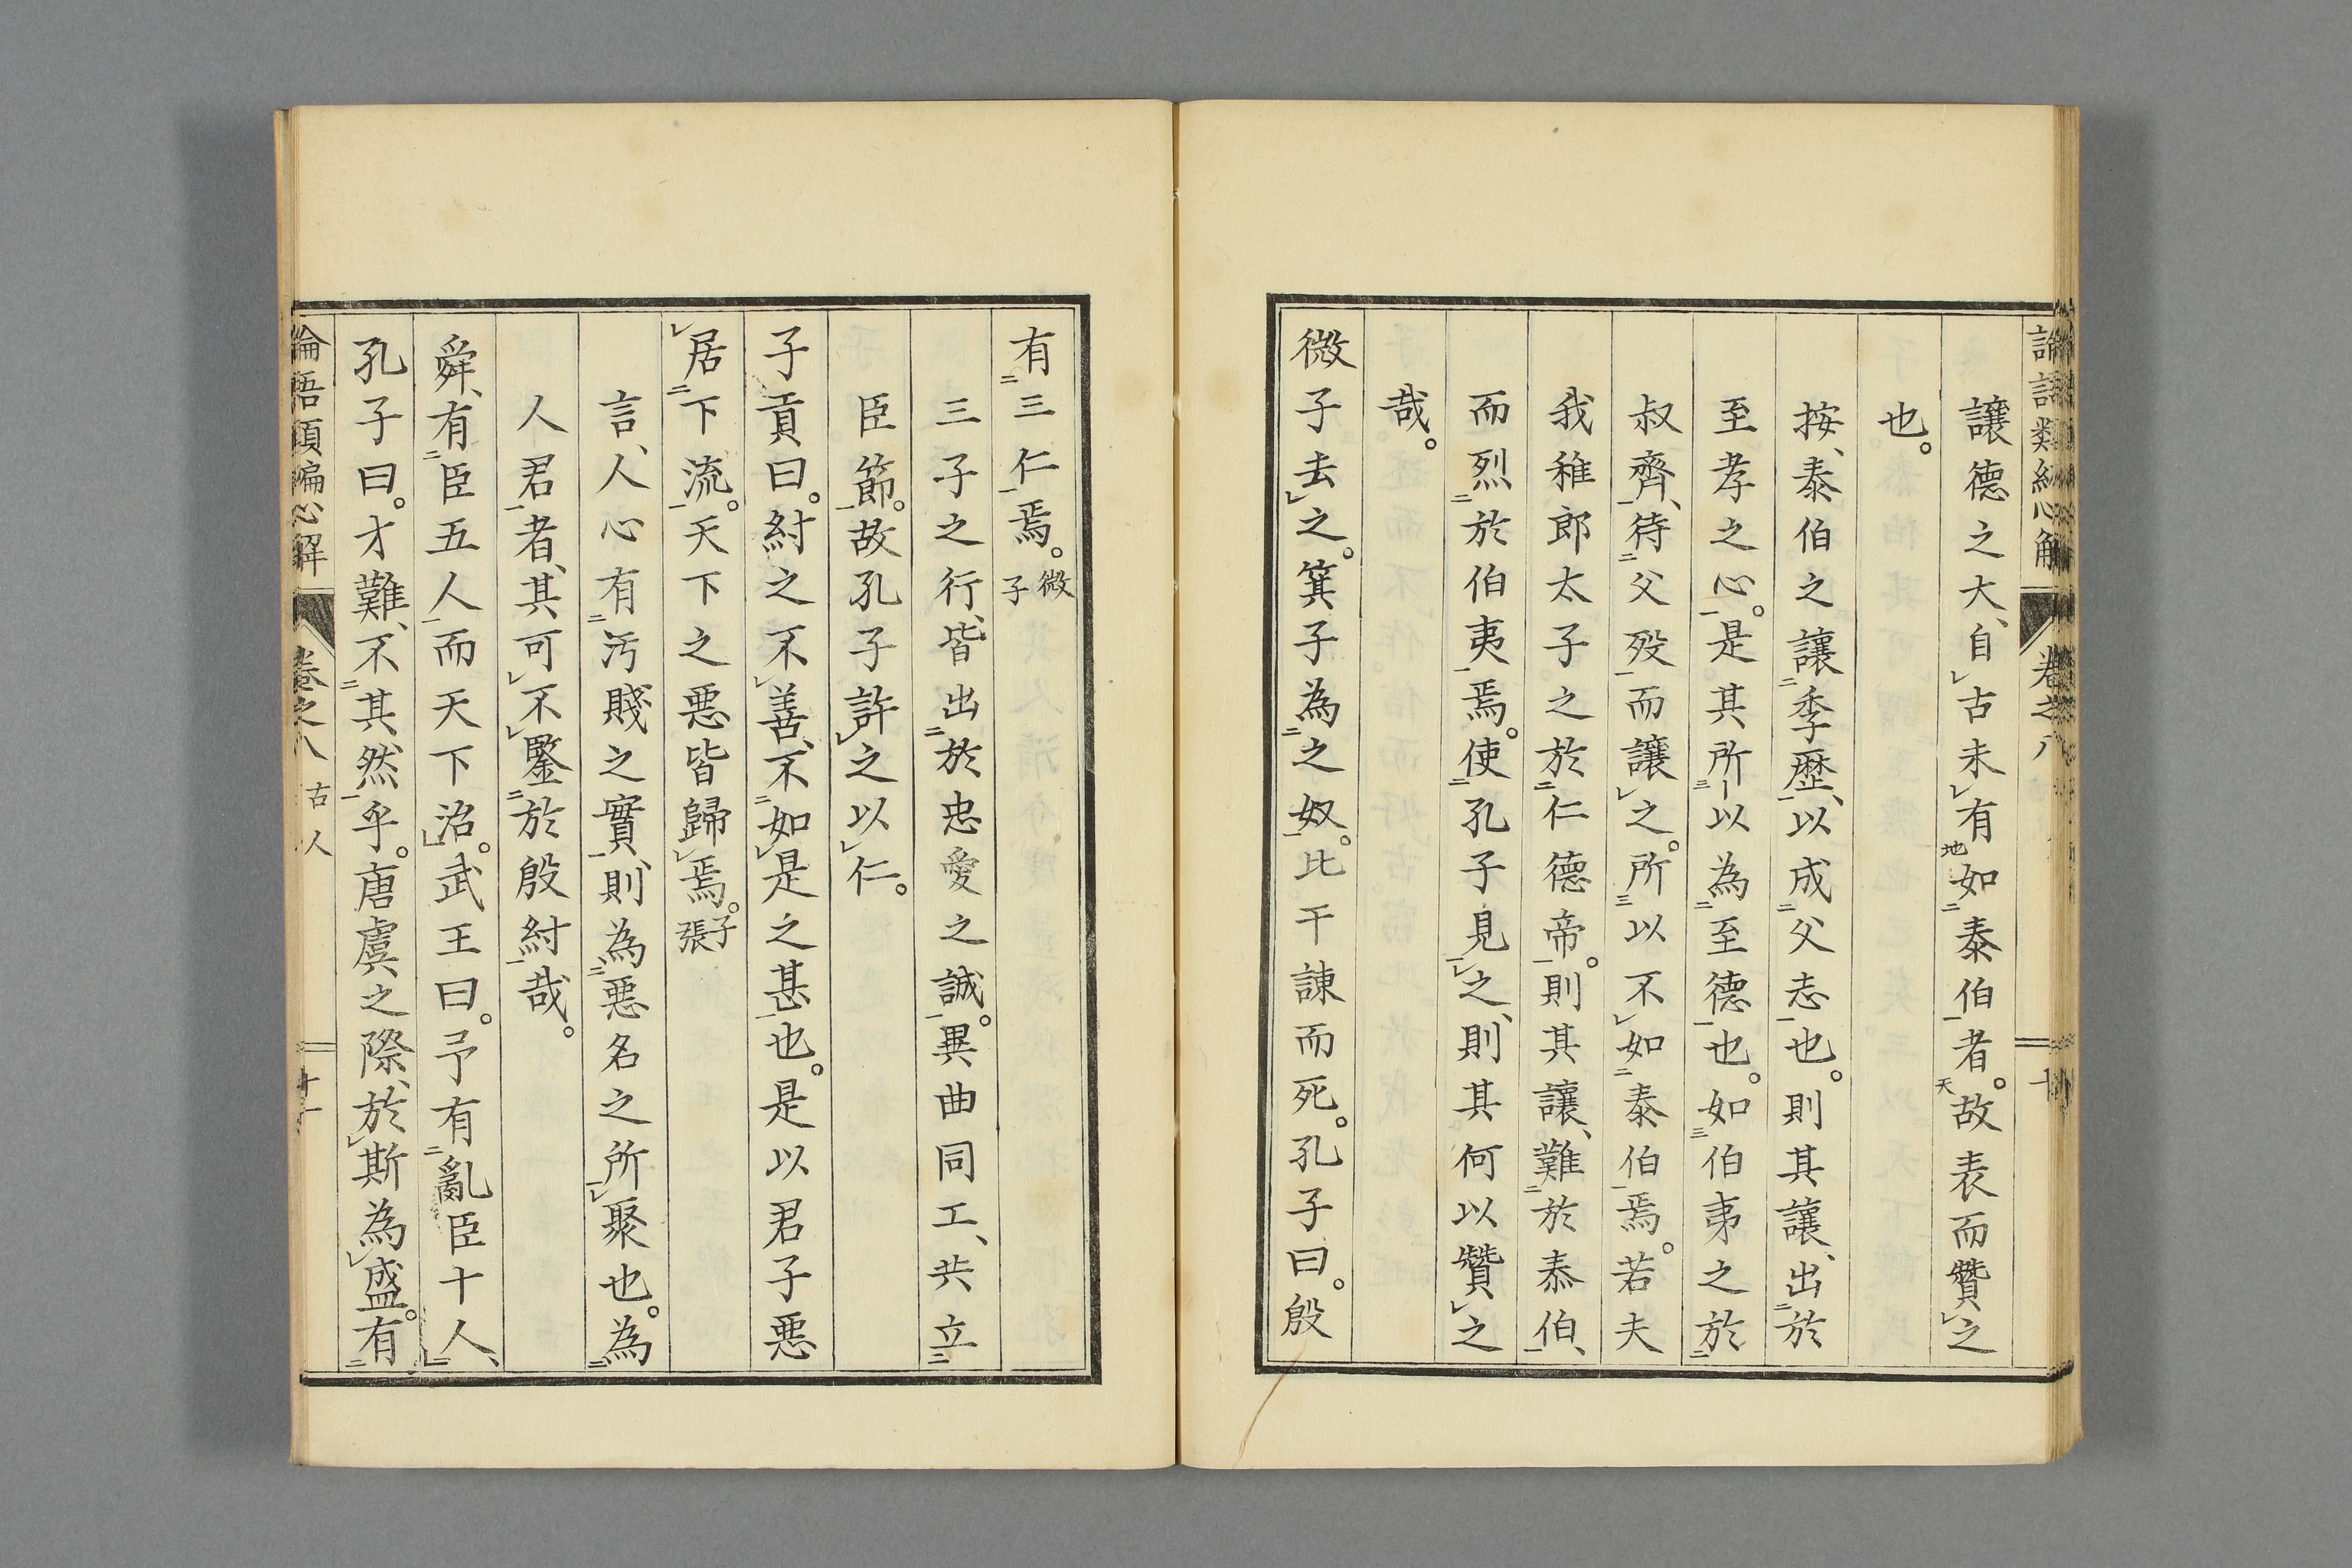 論語類編心解 卷之八 十
讓德之大、自古未有如泰伯者。故表而贊之
也。
按、泰伯之讓季歷、以成父志也。則其讓、出於
至孝之心。是其所以為至德也。如伯夷之於
叔齊、待父歿而讓之。所以不如泰伯焉。若夫
我稚郎太子之於仁德帝。則其讓、難於泰伯、
而烈於伯夷焉。使孔子見之、則其何以贊之
哉。
微子去之。箕子為之奴。比干諫而死。孔子曰。殷
有三仁焉。微子
三子之行、皆出於忠愛之誠。異曲同工、共立
臣節。故孔子許之以仁。
子貢曰。紂之不善、不如是之甚也。是以君子惡
居下流。天下之惡皆歸焉。子張
言、人心有汚賤之實、則為惡名之所聚也。為
人君者、其可不鑒於殷紂哉。
舜、有臣五人而天下治。武王曰。予有亂臣十人、
孔子曰。才難、不其然乎。唐虞之際、於斯為盛。有
論語類編心解 卷之八 古人 十一